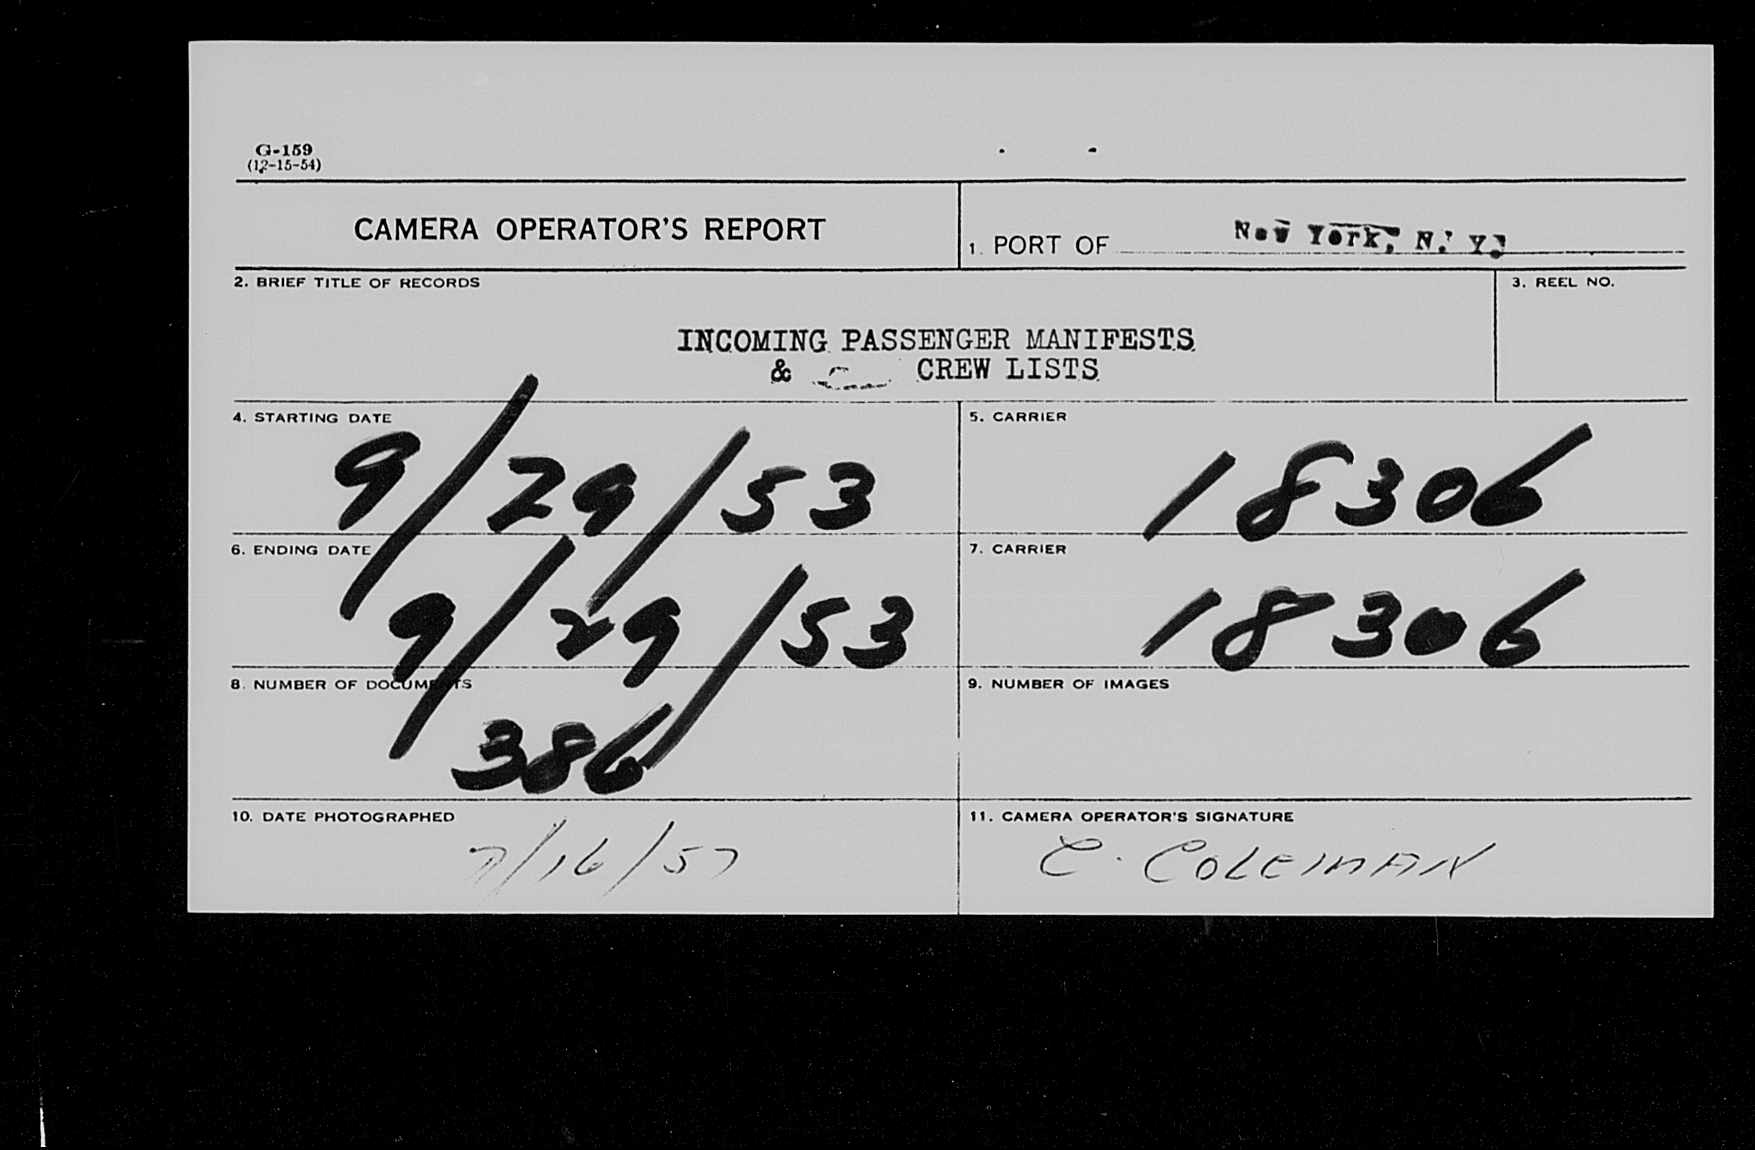 G-159
(12-15-54)
CAMERA OPERATOR'S REPORT
1. PORT OF New York, N. Y.
2. BRIEF TITLE OF RECORDS
3. REEL NO.
INCOMING PASSENGER MANIFESTS
& CREW LISTS
4. STARTING DATE
9/29/53
5. CARRIER
18306
6. ENDING DATE
9/29/53
7. CARRIER
18306
8. NUMBER OF DOCUMENTS
386
9. NUMBER OF IMAGES
10. DATE PHOTOGRAPHED
7/16/57
11. CAMERA OPERATOR'S SIGNATURE
C. COLEMAN